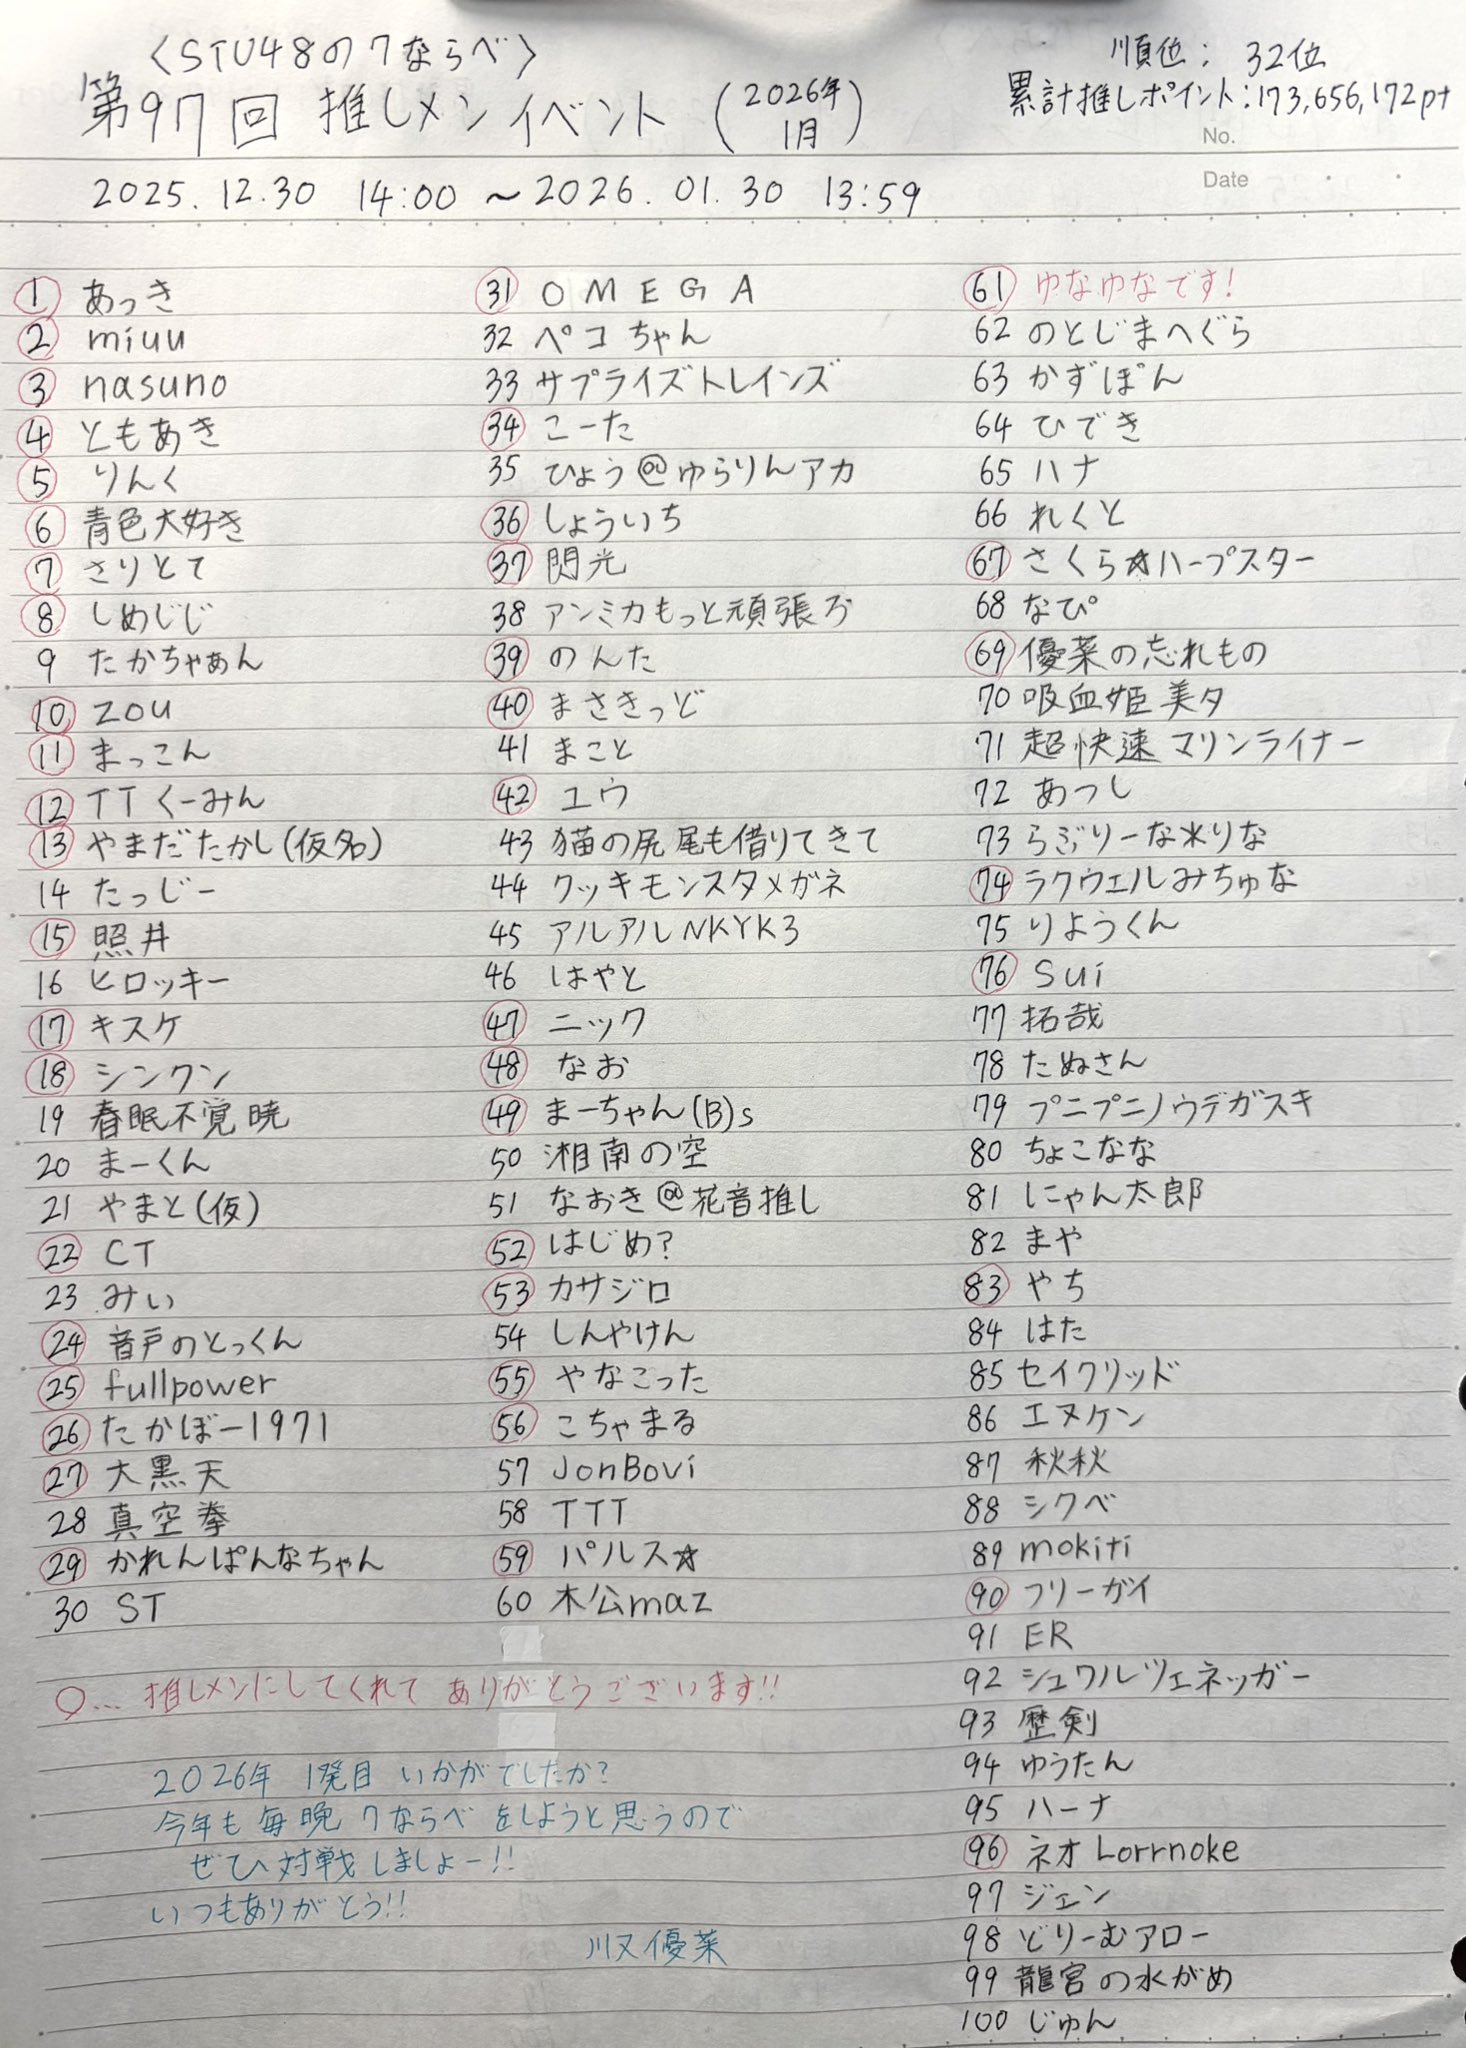 〈STU48の7ならべ〉
第97回 推しメンイベント (2026年1月)
順位: 32位
累計推しポイント:173,656,172pt
No.
Date
2025.12.30 14:00 ~2026.01.30 13:59
1 あっき
2 miuu
3 nasuno
4 ともあき
5 りんく
6 青色大好き
7 さりとて
8 しめじじ
9 たかちゃぁん
10 zou
11 まっこん
12 TTくーみん
13 やまだたかし(仮名)
14 たっじー
15 照井
16 ヒロッキー
17 キスケ
18 シンクン
19 春眠不覚暁
20 まーくん
21 やまと(仮)
22 CT
23 みぃ
24 音戸のとっくん
25 fullpower
26 たかぼー1971
27 大黒天
28 真空拳
29 かれんぱんなちゃん
30 ST
31 OMEGA
32 ペコちゃん
33 サプライズトレインズ
34 こーた
35 ひょう@ゆらりんアカ
36 しょういち
37 閃光
38 アンミカもっと頑張ろ
39 のんた
40 まさきっど
41 まこと
42 ユウ
43 猫の尻尾も借りてきて
44 クッキモンスタメガネ
45 アルアルNKYK3
46 はやと
47 ニック
48 なお
49 まーちゃん(B)s
50 湘南の空
51 なおき@花音推し
52 はじめ?
53 カサジロ
54 しんやけん
55 やなこった
56 こちゃまる
57 JonBovi
58 TTT
59 パルス☆
60 木公maz
61 ゆなゆなです!
62 のとじまへぐら
63 かずぽん
64 ひでき
65 ハナ
66 れくと
67 さくら☆ハープスター
68 なぴ
69 優菜の忘れもの
70 吸血姫美夕
71 超快速マリンライナー
72 あつし
73 らぶりーな米りな
74 ラクウェルみちゅな
75 りようくん
76 Sui
77 拓哉
78 たぬさん
79 プニプニノウデガスキ
80 ちょこなな
81 にゃん太郎
82 まや
83 やち
84 はた
85 セイクリッド
86 エヌケン
87 秋秋
88 シクベ
89 mokiti
90 フリーガイ
91 ER
92 シュワルツェネッガー
93 歴剣
94 ゆうたん
95 ハーナ
96 ネオLorrnoke
97 ジェン
98 どりーむアロー
99 龍宮の水がめ
100 じゅん
○... 推しメンにしてくれてありがとうございます!!
2026年 1発目 いかがでしたか?
今年も毎晩7ならべをしようと思うので
ぜひ対戦しましょー!!
いつもありがとう!!
川又優菜